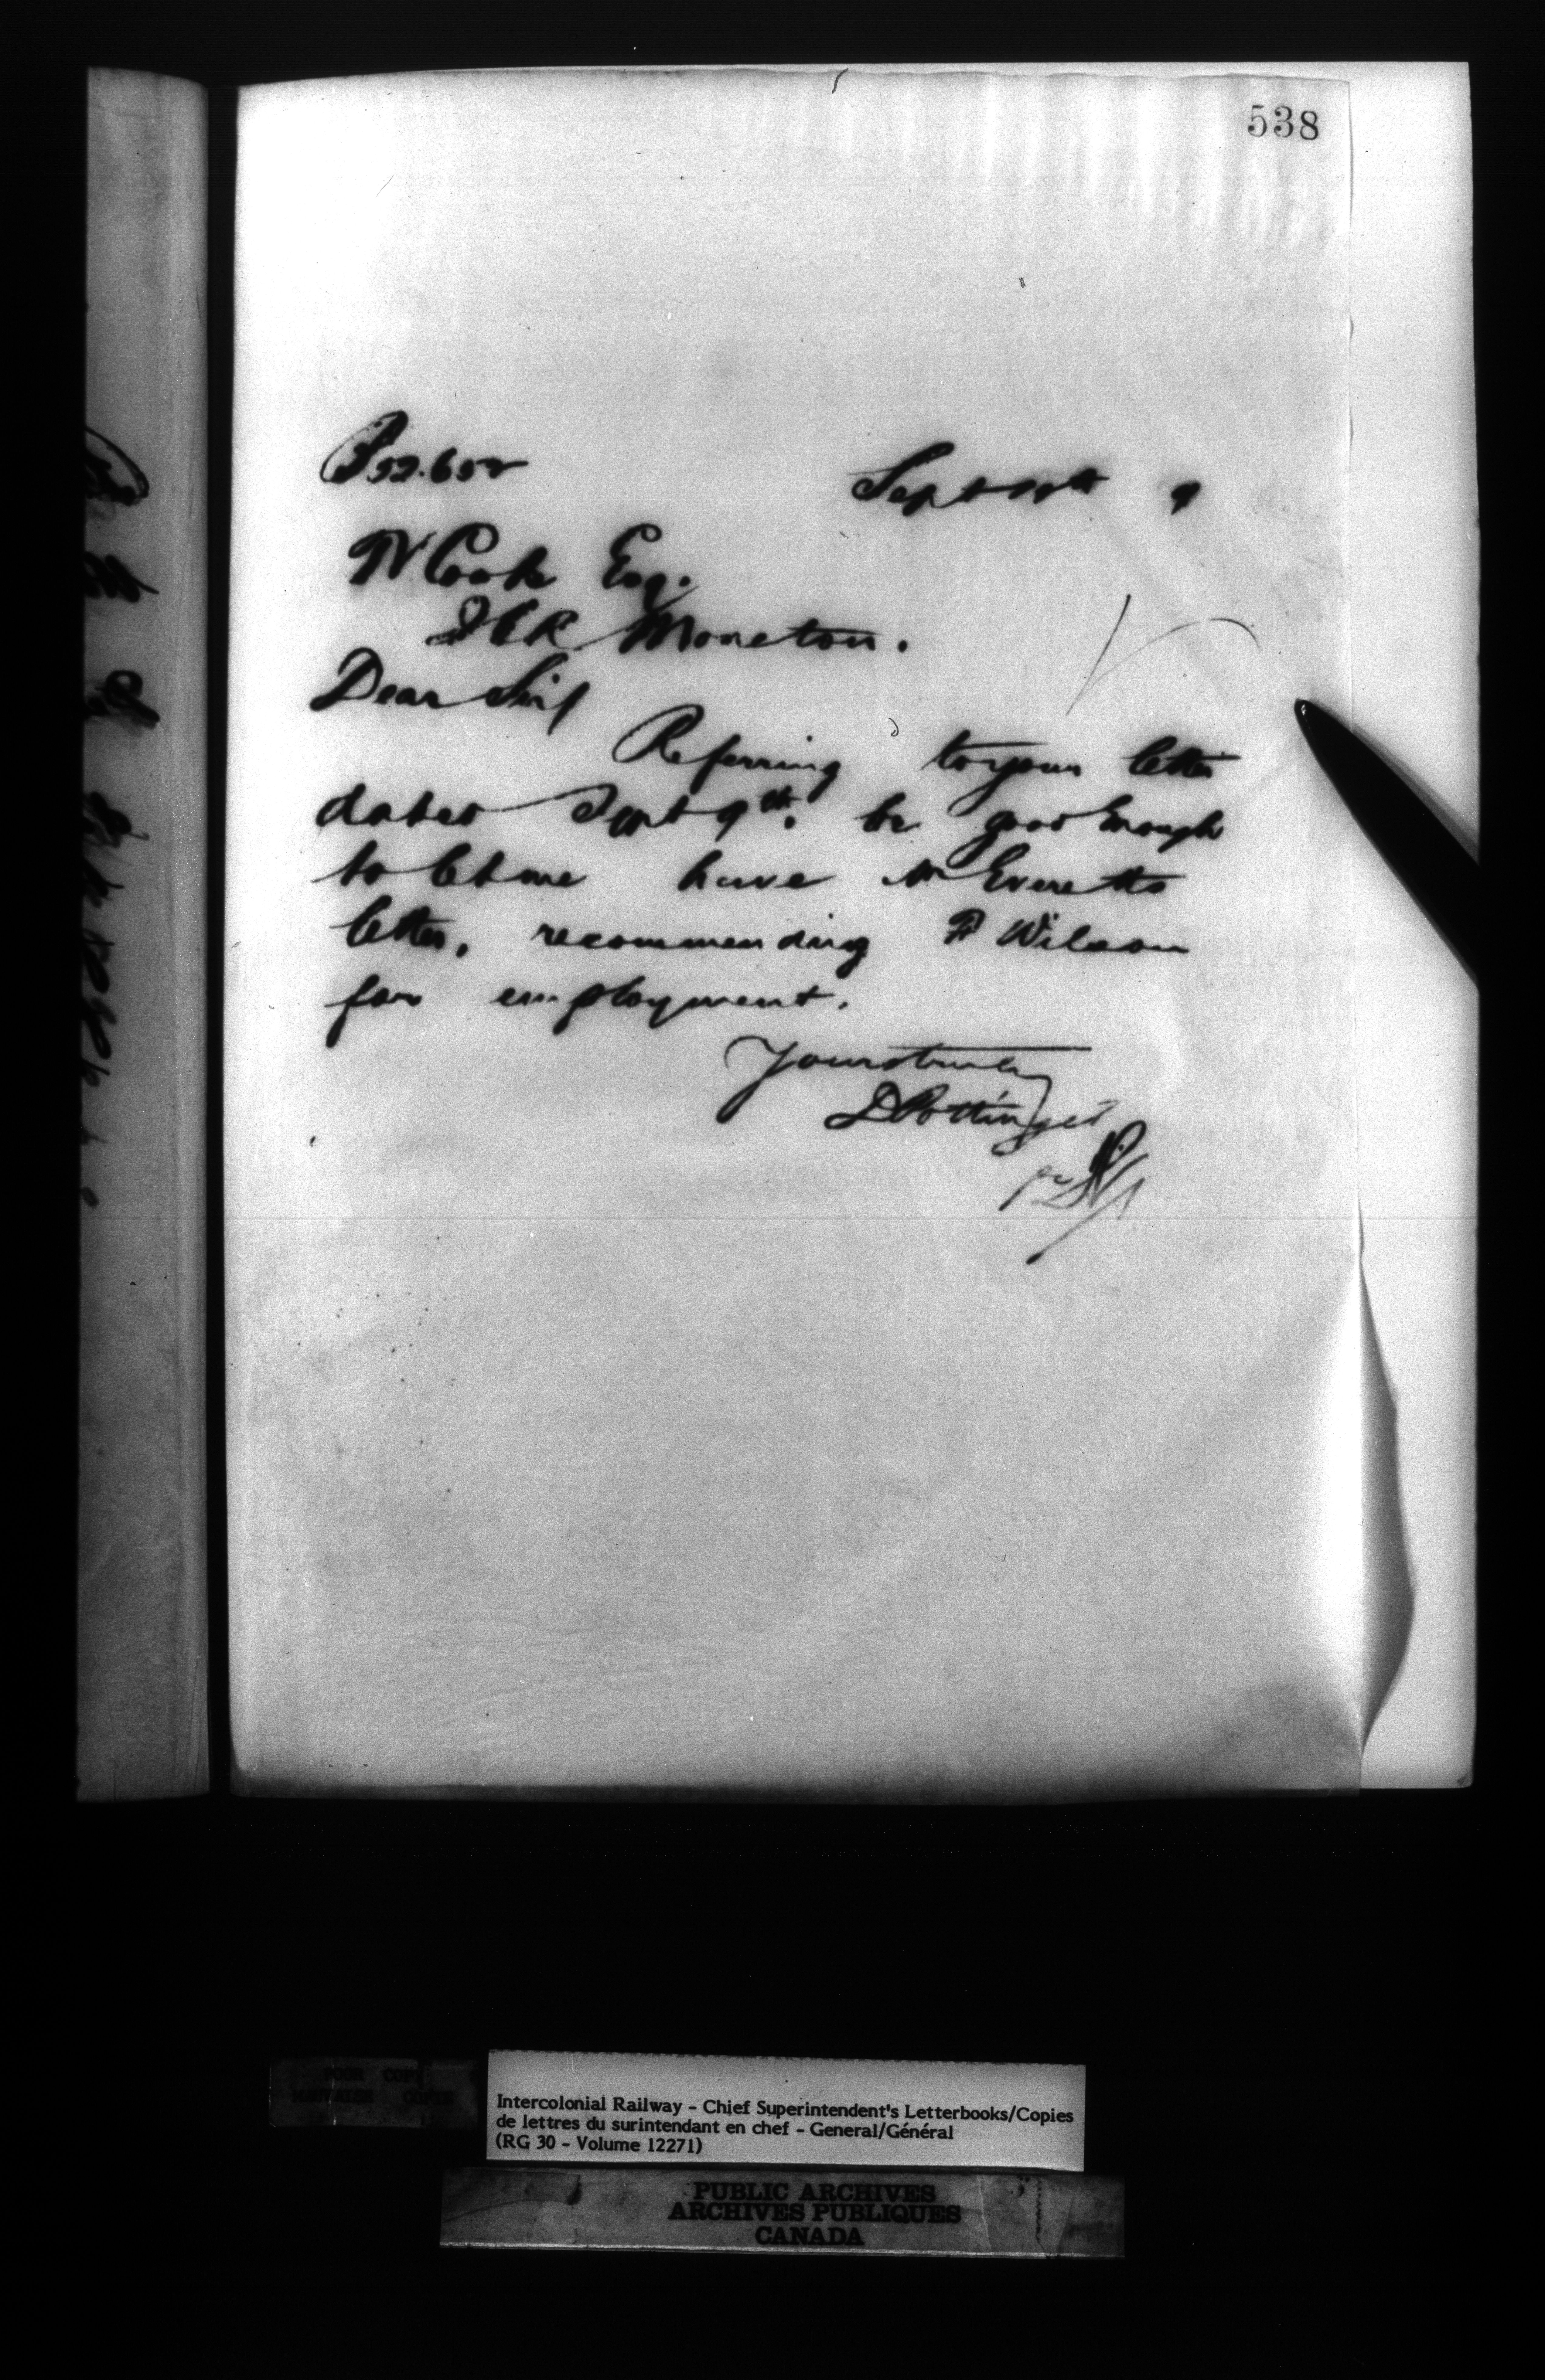 538
52.652
Sept 9
Cook Esq.
ICR Moncton.
Dear Sir/
Referring to your letter
dated Sept 9th. be good enough
to let me have Mr Everetts
letter, recommending F Wilson
for employment.
Yours truly
D Pottinger
pr
POOR COPY
MAUVAISE COPIE
Intercolonial Railway - Chief Superintendent's Letterbooks/Copies
de lettres du surintendant en chef - General/Général
(RG 30 - Volume 12271)
PUBLIC ARCHIVES
ARCHIVES PUBLIQUES
CANADA